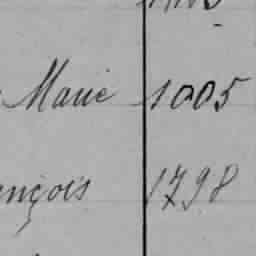 Marie 1005
ençois 1798